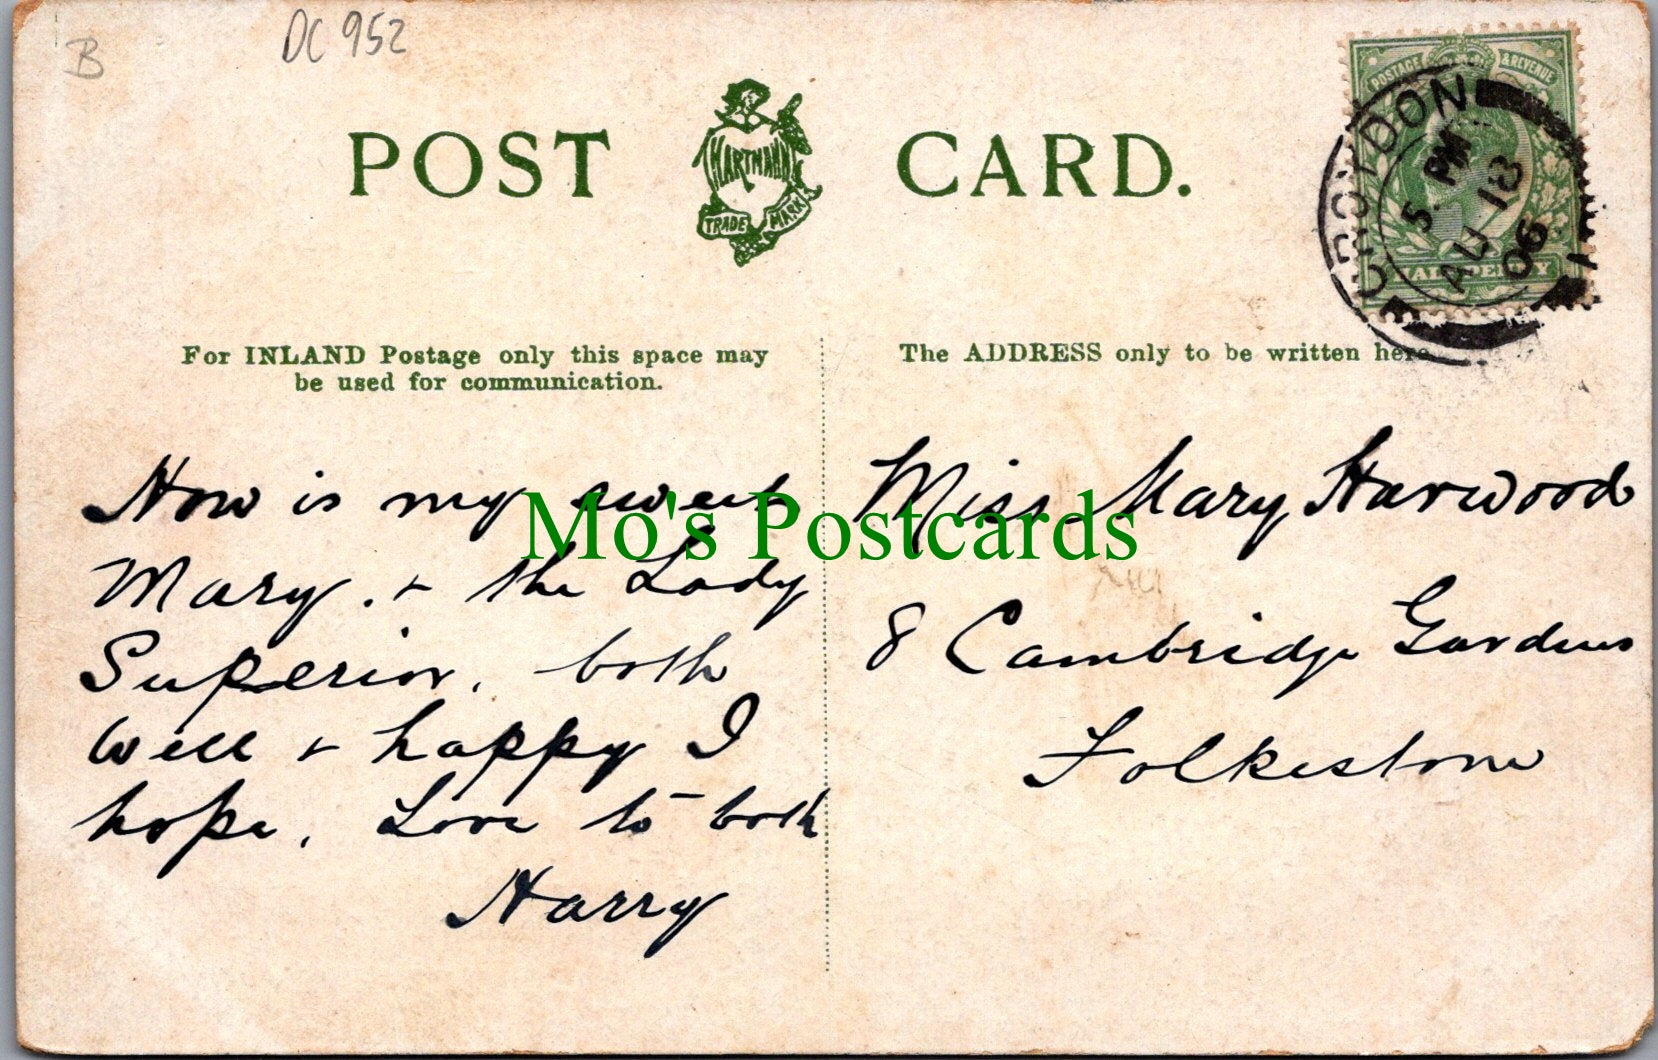 B
DC 952
POST CARD.
HARTMANN
TRADE MARK
POSTAGE & REVENUE
HALFPENNY
CROYDON
5. PM
AU 18
06
For INLAND Postage only this space may
be used for communication.
The ADDRESS only to be written here.
How is my sweet
Mary. + the Lady
Superior. both
well + happy I
hope. Love to both
Harry
Miss Mary Harwood
8 Cambridge Gardens
Folkestone
Mo's Postcards